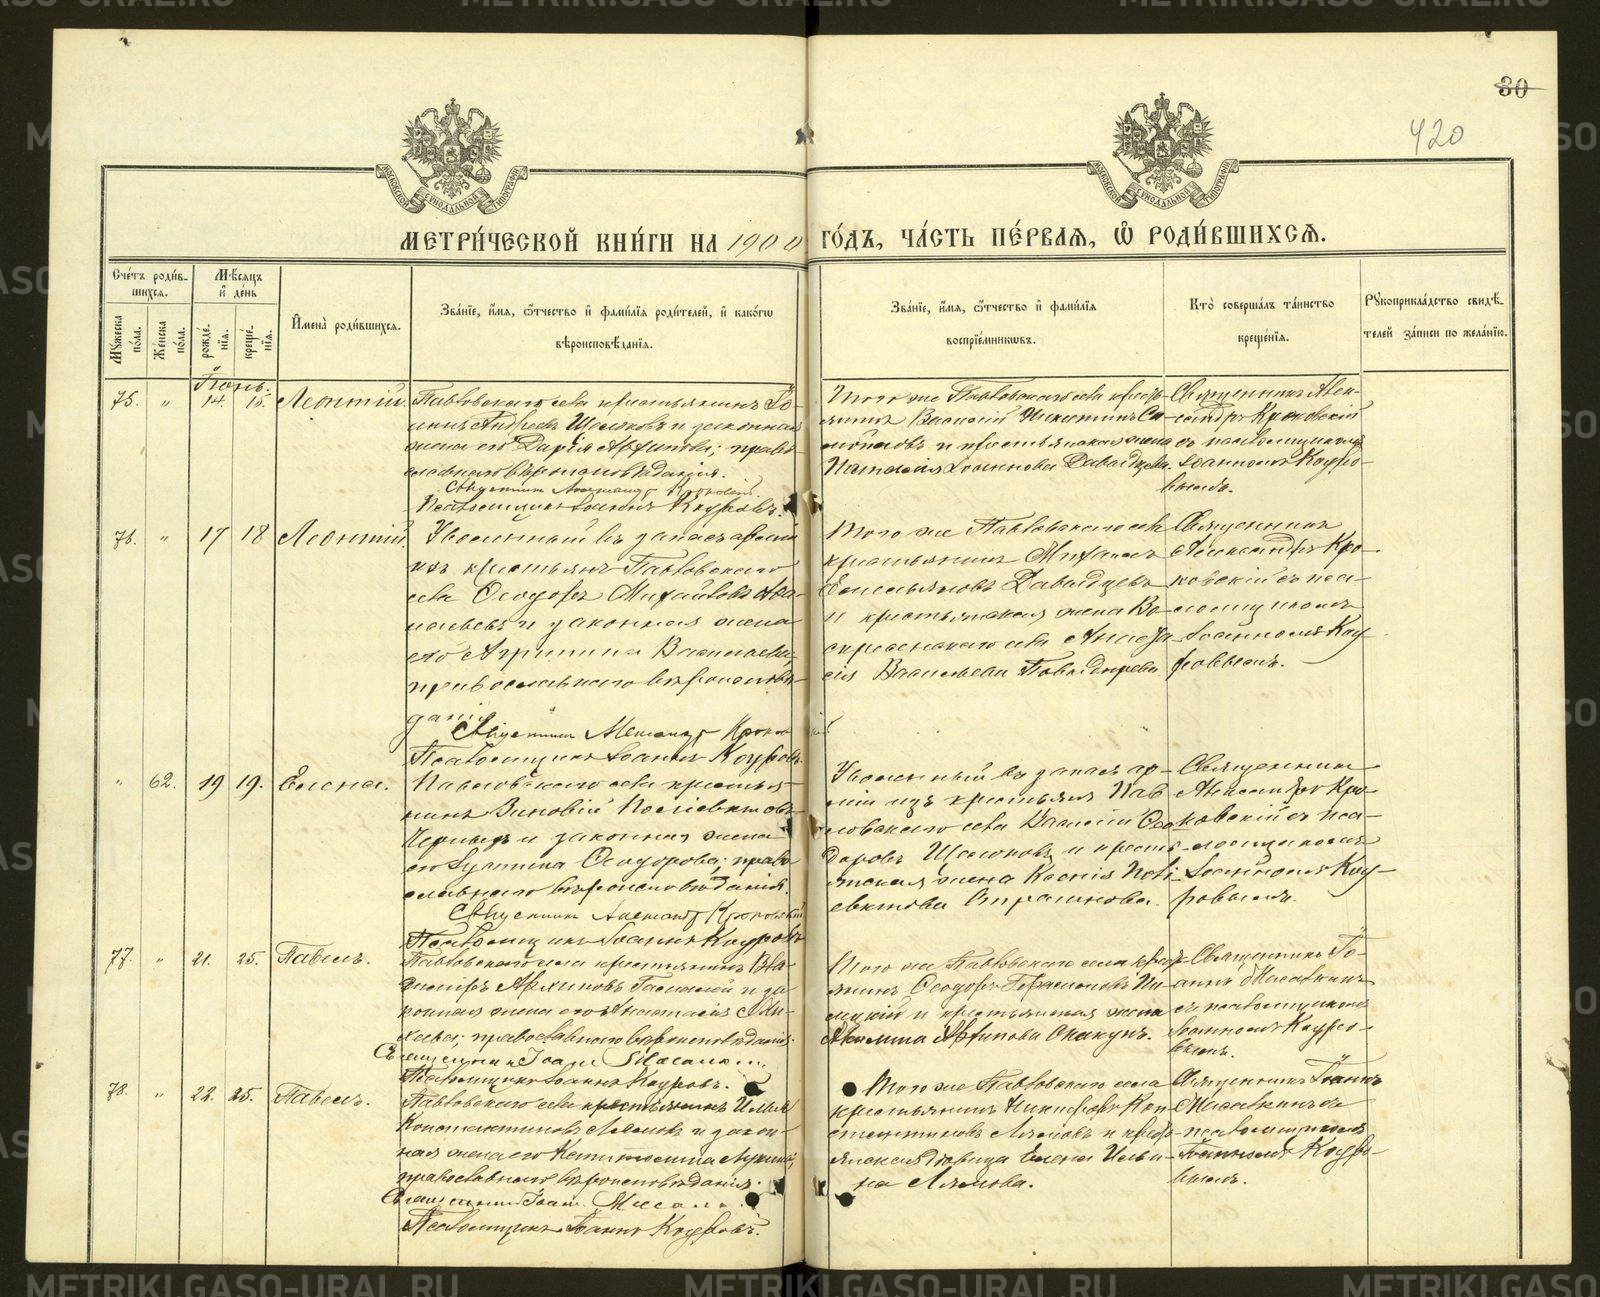 30
420
МОСКОВСКОЙ СУНОДАЛЬНОЙ ТИПОГРАФИИ
МОСКОВСКОЙ СУНОДАЛЬНОЙ ТИПОГРАФИИ
МЕТРИ́ЧЕСКОЙ КНИ́ГИ НА 1900 ГО́ДЪ, ЧА́СТЬ ПЕ́РВАѦ, Ѿ РОДИ́ВШИХСѦ.
Сче́тъ роди́в-
шихсѧ.
Мꙋ́жеска по́ла.
Же́нска по́ла.
Мѣ́сѧцъ
и҆ де́нь
рожде́нїѧ.
креще́нїѧ.
И҆мена̀ роди́вшихсѧ.
Зва́нїе, и҆́мѧ, ѻ҆́тчество и҆ фами́лїѧ роди́телей, и҆ како́гѡ
вѣроисповѣ́данїѧ.
Зва́нїе, и҆́мѧ, ѻ҆́тчество и҆ фами́лїѧ
воспрїе́мникѡвъ.
Кто̀ соверша́лъ та́инство
креще́нїѧ.
Рꙋкоприкла́дство свидѣ́-
телей за́писи по жела́нїю.
Іюнь.
75. " 14. 15. Леонтій.
Павловскаго села крестьянинъ Іо-
аннъ Андреевъ Щелоковъ и законная
жена его Дарія Архипова; право-
славнаго вѣроисповѣданія.
Священникъ Александръ Кроковскій.
Псаломщикъ Іоаннъ Кауровъ.
Того же Павловскаго села кресть-
янинъ Василій Никитинъ
и крестьянская жена
Наталія Іоаннова Давыдцева.
Священникъ Алек-
сандръ Кроковскій
съ псаломщикомъ
Іоанномъ Кауро-
вымъ.
76. " 17 18 Леонтій.
Уволенный въ запасъ арміи
изъ крестьянъ Павловскаго
села Ѳеодоръ Михайловъ
и законная жена
его Агрипина Васильева,
православнаго вѣроисповѣ-
данія
Священникъ Александръ Кроковскій
Псаломщикъ Іоаннъ Кауровъ
Того же Павловскаго села
крестьянинъ Михаилъ
Емельяновъ Давыдцевъ
и крестьянская жена Во-
скресенскаго села
Васильева
Священникъ
Александръ Кро-
ковскій съ пса-
ломщикомъ
Іоанномъ Кау-
ровымъ.
" 62. 19 19. Елена.
Павловскаго села крестья-
нинъ Зиновій Поліевктовъ
Черныхъ и законная жена
его Ѳеодорова; право-
славнаго вѣроисповѣданія.
Священникъ Александръ Кроковскій
Псаломщикъ Іоаннъ Кауровъ
Уволенный въ запасъ ар-
міи изъ крестьянъ Пав-
ловскаго села Василій Ѳео-
доровъ Щелоковъ и кресть-
янская жена Ксенія Поли-
евктова
Священникъ
Александръ Кро-
ковскій съ пса-
ломщикомъ
Іоанномъ Кау-
ровымъ.
77. " 21. 25. Павелъ.
Павловскаго села крестьянинъ Вла-
диміръ Архиповъ и за-
конная жена его Анастасія
православнаго вѣроисповѣданія.
Священникъ Іоаннъ
Псаломщикъ Іоаннъ Кауровъ.
Того же Павловскаго села кресть-
янинъ Ѳеодоръ Герасимовъ
и крестьянская жена
Архипова
Священникъ Іо-
аннъ
съ псаломщикомъ
Іоанномъ Кауро-
вымъ.
78. " 22. 25. Павелъ.
Павловскаго села крестьянинъ Илья
Константиновъ и закон-
ная жена его Капитолина
православнаго вѣроисповѣданія.
Священникъ Іоаннъ
Псаломщикъ Іоаннъ Кауровъ.
Того же Павловскаго села
крестьянинъ Никифоръ Кон-
стантиновъ и кресть-
янская дѣвица Елена Ильи-
на
Священникъ Іоаннъ
съ
псаломщикомъ
Іоанномъ Кауро-
вымъ.
METRIKI.GASO-URAL.RU